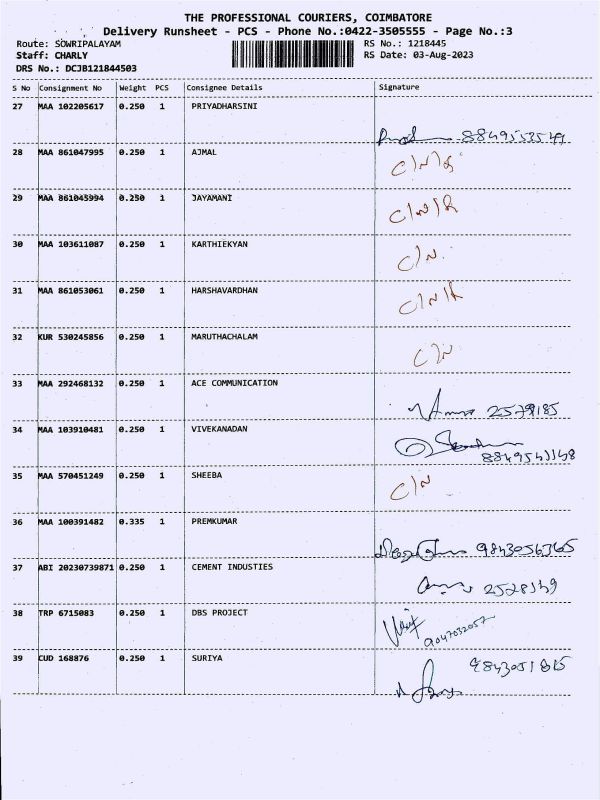 THE PROFESSIONAL COURIERS, COIMBATORE
Delivery Runsheet - PCS - Phone No.:0422-3505555 - Page No.:3
Route: SOWRIPALAYAM RS No.: 1218445
Staff: CHARLY RS Date: 03-Aug-2023
DRS No.: DCJB121844503
S No Consignment No Weight PCS Consignee Details Signature
27 MAA 102205617 0.250 1 PRIYADHARSINI
28 MAA 861047995 0.250 1 AJMAL
29 MAA 861045994 0.250 1 JAYAMANI C/N/R
30 MAA 103611087 0.250 1 KARTHIEKYAN C/N
31 MAA 861053061 0.250 1 HARSHAVARDHAN C/N/R
32 KUR 530245856 0.250 1 MARUTHACHALAM C/N
33 MAA 292468132 0.250 1 ACE COMMUNICATION
34 MAA 103910481 0.250 1 VIVEKANADAN
35 MAA 570451249 0.250 1 SHEEBA C/N
36 MAA 100391482 0.335 1 PREMKUMAR 9843056365
37 ABI 20230739871 0.250 1 CEMENT INDUSTIES
38 TRP 6715083 0.250 1 DBS PROJECT 9047032057
39 CUD 168876 0.250 1 SURIYA